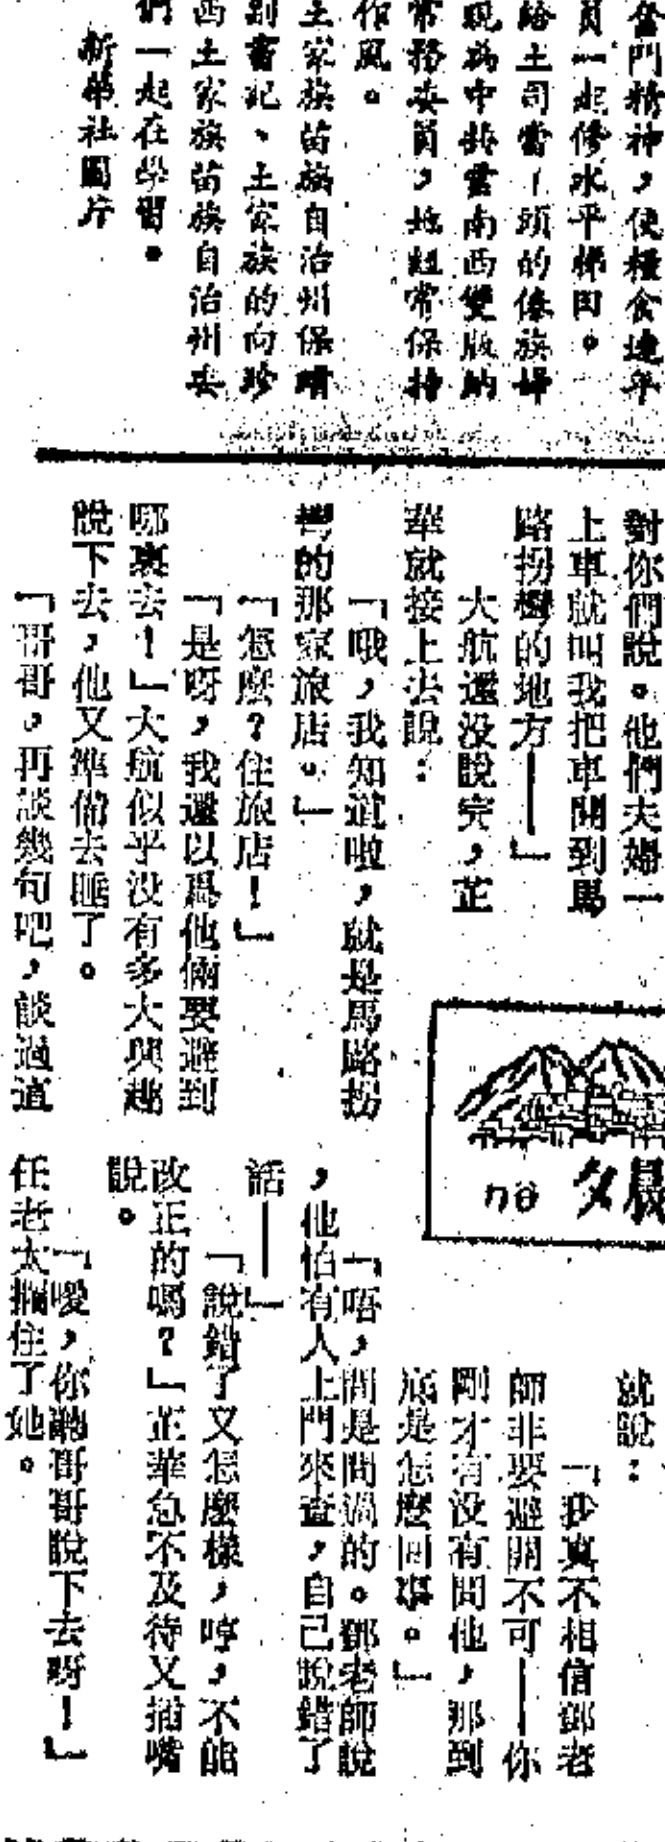 奮鬥精神，使糧食連年
員一起修水平梯田。
給土司當丫頭的傣族婦
現爲中共雲南西雙版納
常務委員，她經常保持
作風。
土家族苗族自治州保靖
副書記、土家族的向珍
西土家族苗族自治州委
們一起在學習。
新華社圖片
對你們說。他們夫婦一
上車就叫我把車開到馬
路拐彎的地方——」
大航還没說完，芷
華就接上去說：
「哦，我知道啦，就是馬路拐
彎的那家旅店。」
「怎麼？住旅店！」
「是呀，我還以爲他倆要避到
哪裏去！」大航似乎没有多大興趣
說下去，他又準備去睡了。
「哥哥，再談幾句吧，談過這
就說：
「我真不相信鄧老
師非要避開不可——你
剛才有没有問他，那到
底是怎麼回事。」
「唔，問是問過的。鄧老師說
，他怕有人上門來查，自己說錯了
話——」
「說錯了又怎麼樣，哼，不能
改正的嗎？」芷華急不及待又插嘴
說。
「噯，你聽哥哥說下去呀！」
任老太攔住了她。